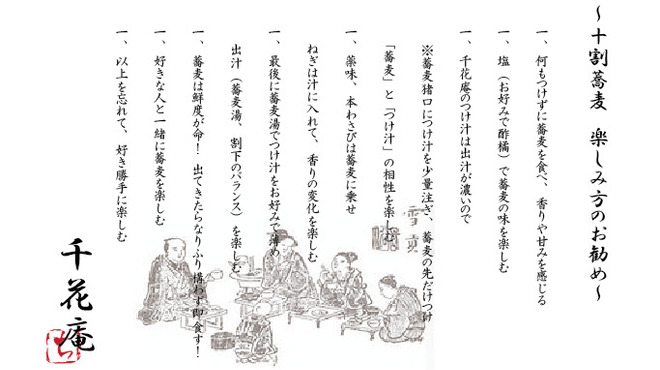 ～十割蕎麦　楽しみ方のお勧め～
一、何もつけずに蕎麦を食べ、香りや甘みを感じる
一、塩（お好みで酢橘）で蕎麦の味を楽しむ
一、千花庵のつけ汁は出汁が濃いので
※蕎麦猪口につけ汁を少量注ぎ、蕎麦の先だけつけ
「蕎麦」と「づけ汁」の相性を楽しむ
一、薬味、本わさびは蕎麦に乗せ
ねぎは汁に入れて、香りの変化を楽しむ
一、最後に蕎麦湯でつけ汁をお好みで薄め
出汁（蕎麦湯、割下のバランス）を楽しむ
一、蕎麦は鮮度が命！出てきたらなりふり構わず即食す！
一、好きな人と一緒に蕎麦を楽しむ
一、以上を忘れて、好き勝手に楽しむ
千花庵